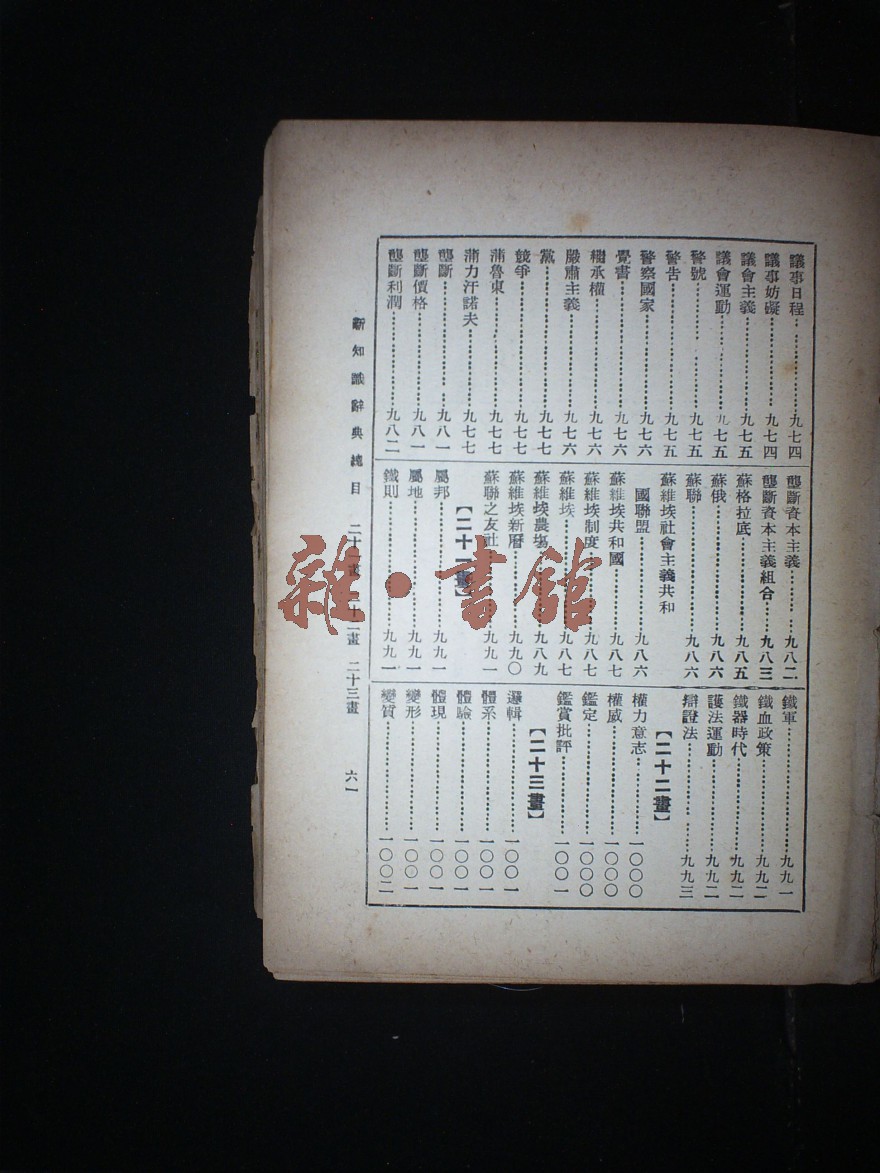 議事日程………九七四
議事妨礙………九七四
議會主義………九七五
議會運動………九七五
警號………九七五
警告………九七五
警察國家………九七六
覺書………九七六
繼承權………九七六
嚴肅主義………九七六
黨………九七七
競爭………九七七
蒲魯東………九七七
蒲力汗諾夫………九七七
壟斷………九八一
壟斷價格………九八一
壟斷利潤………九八二
壟斷資本主義………九八二
壟斷資本主義組合………九八三
蘇格拉底………九八五
蘇俄………九八六
蘇聯………九八六
蘇維埃社會主義共和
國聯盟………九八六
蘇維埃共和國………九八七
蘇維埃制度………九八七
蘇維埃………九八七
蘇維埃農場………九八九
蘇維埃新曆………九九〇
蘇聯之友社………九九一
【二十一畫】
屬邦………九九一
屬地………九九一
鐵則………九九一
鐵軍………九九一
鐵血政策………九九二
鐵器時代………九九二
護法運動………九九二
辯證法………九九三
【二十二畫】
權力意志………一〇〇〇
權威………一〇〇〇
鑑定………一〇〇〇
鑑賞批評………一〇〇一
【二十三畫】
邏輯………一〇〇一
體系………一〇〇一
體驗………一〇〇一
體現………一〇〇一
變形………一〇〇一
變質………一〇〇二
新知識辭典總目 二十一畫 二十二畫 二十三畫 六一
雜·書館